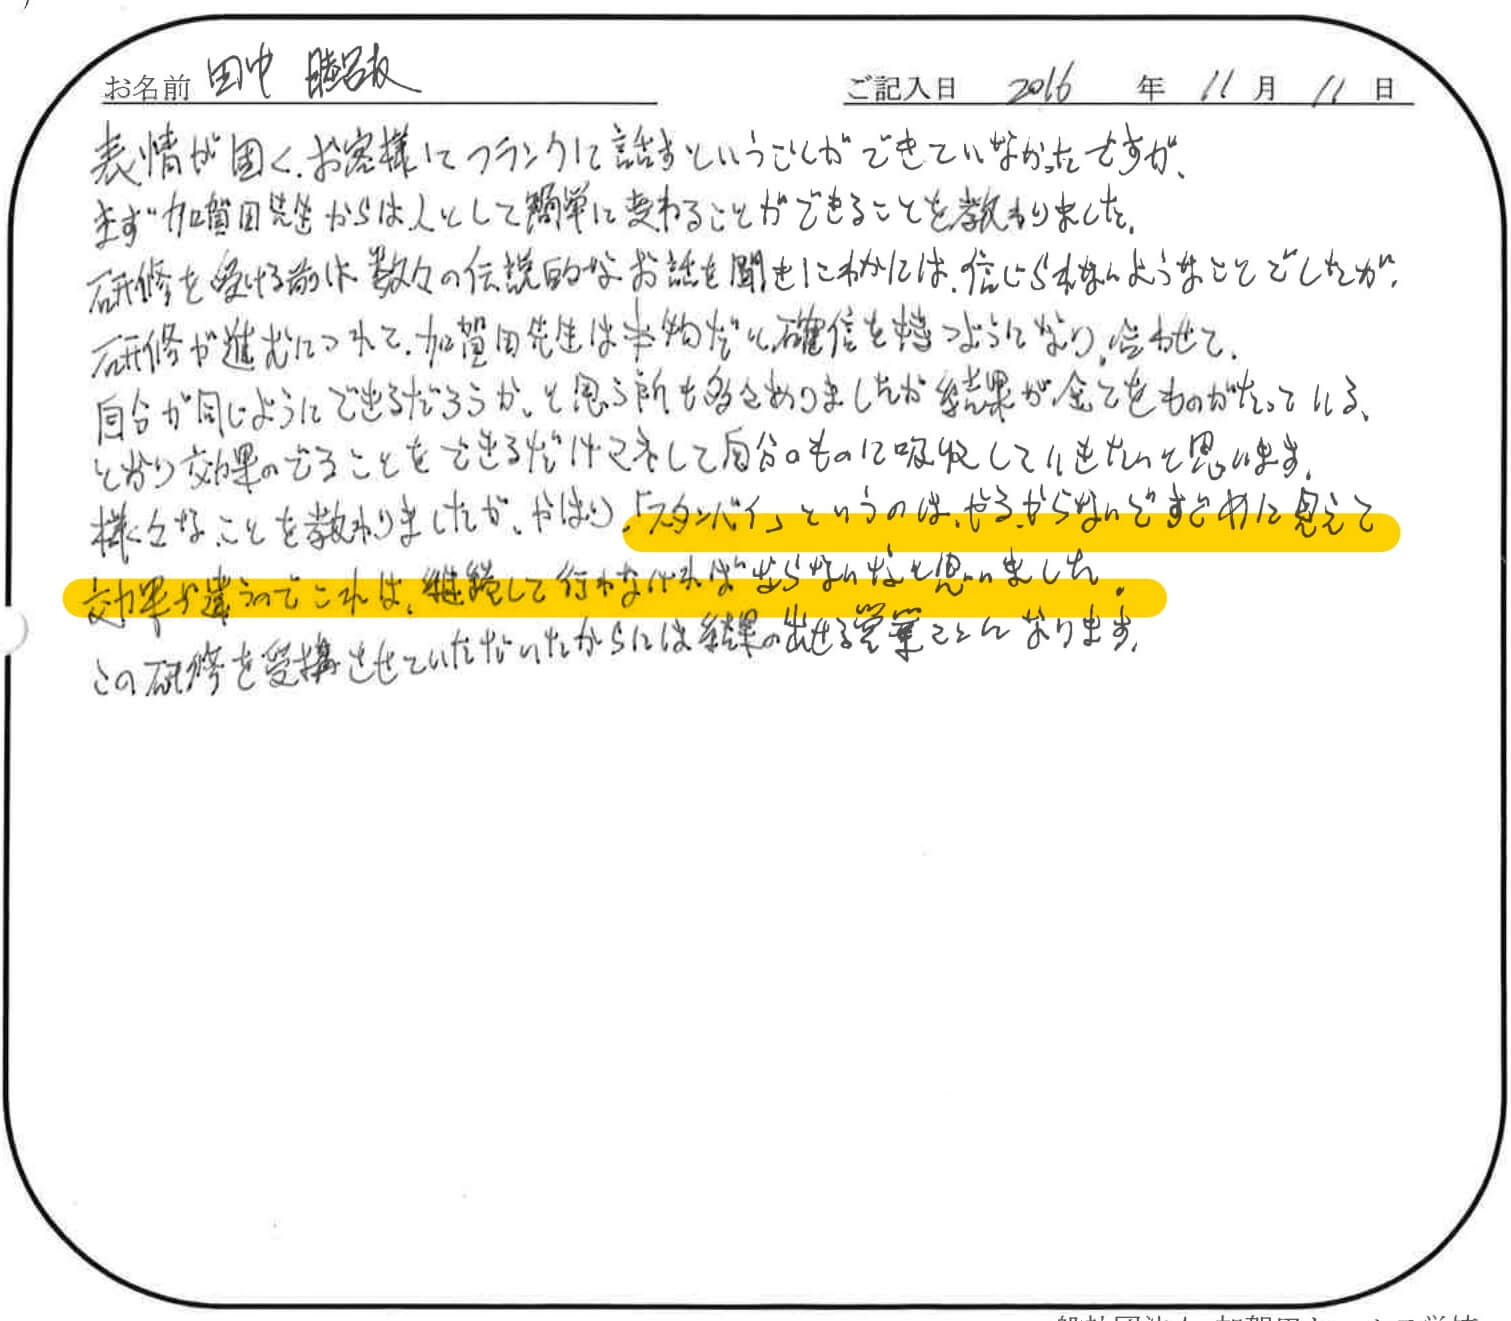 お名前 田中
ご記入日 2016 年 11 月 11 日
表情が固く、お客様にフランクに話すということができていなかったですが、
まず加賀田先生からは人として簡単に変わることができることを教わりました。
研修を受ける前は数々の伝説的なお話を聞きにわかには、信じられないようなことでしたが、
研修が進むにつれて、加賀田先生は本物だと確信を持つようになり、合わせて、
自分が同じようにできるだろうか、と思う所も多々ありましたが結果が全てをものがたっている、
とおり効果のでることをできるだけマネして自分のものに吸収していきたいと思います。
様々なことを教わりましたが、やはり、「スタンバイ」というのは、やる、やらないですじめに見えて
効果が違うのでこれは、継続して行わなければならないなと思いました。
この研修を受講させていただいたからには結果の出せる営業マンになります。